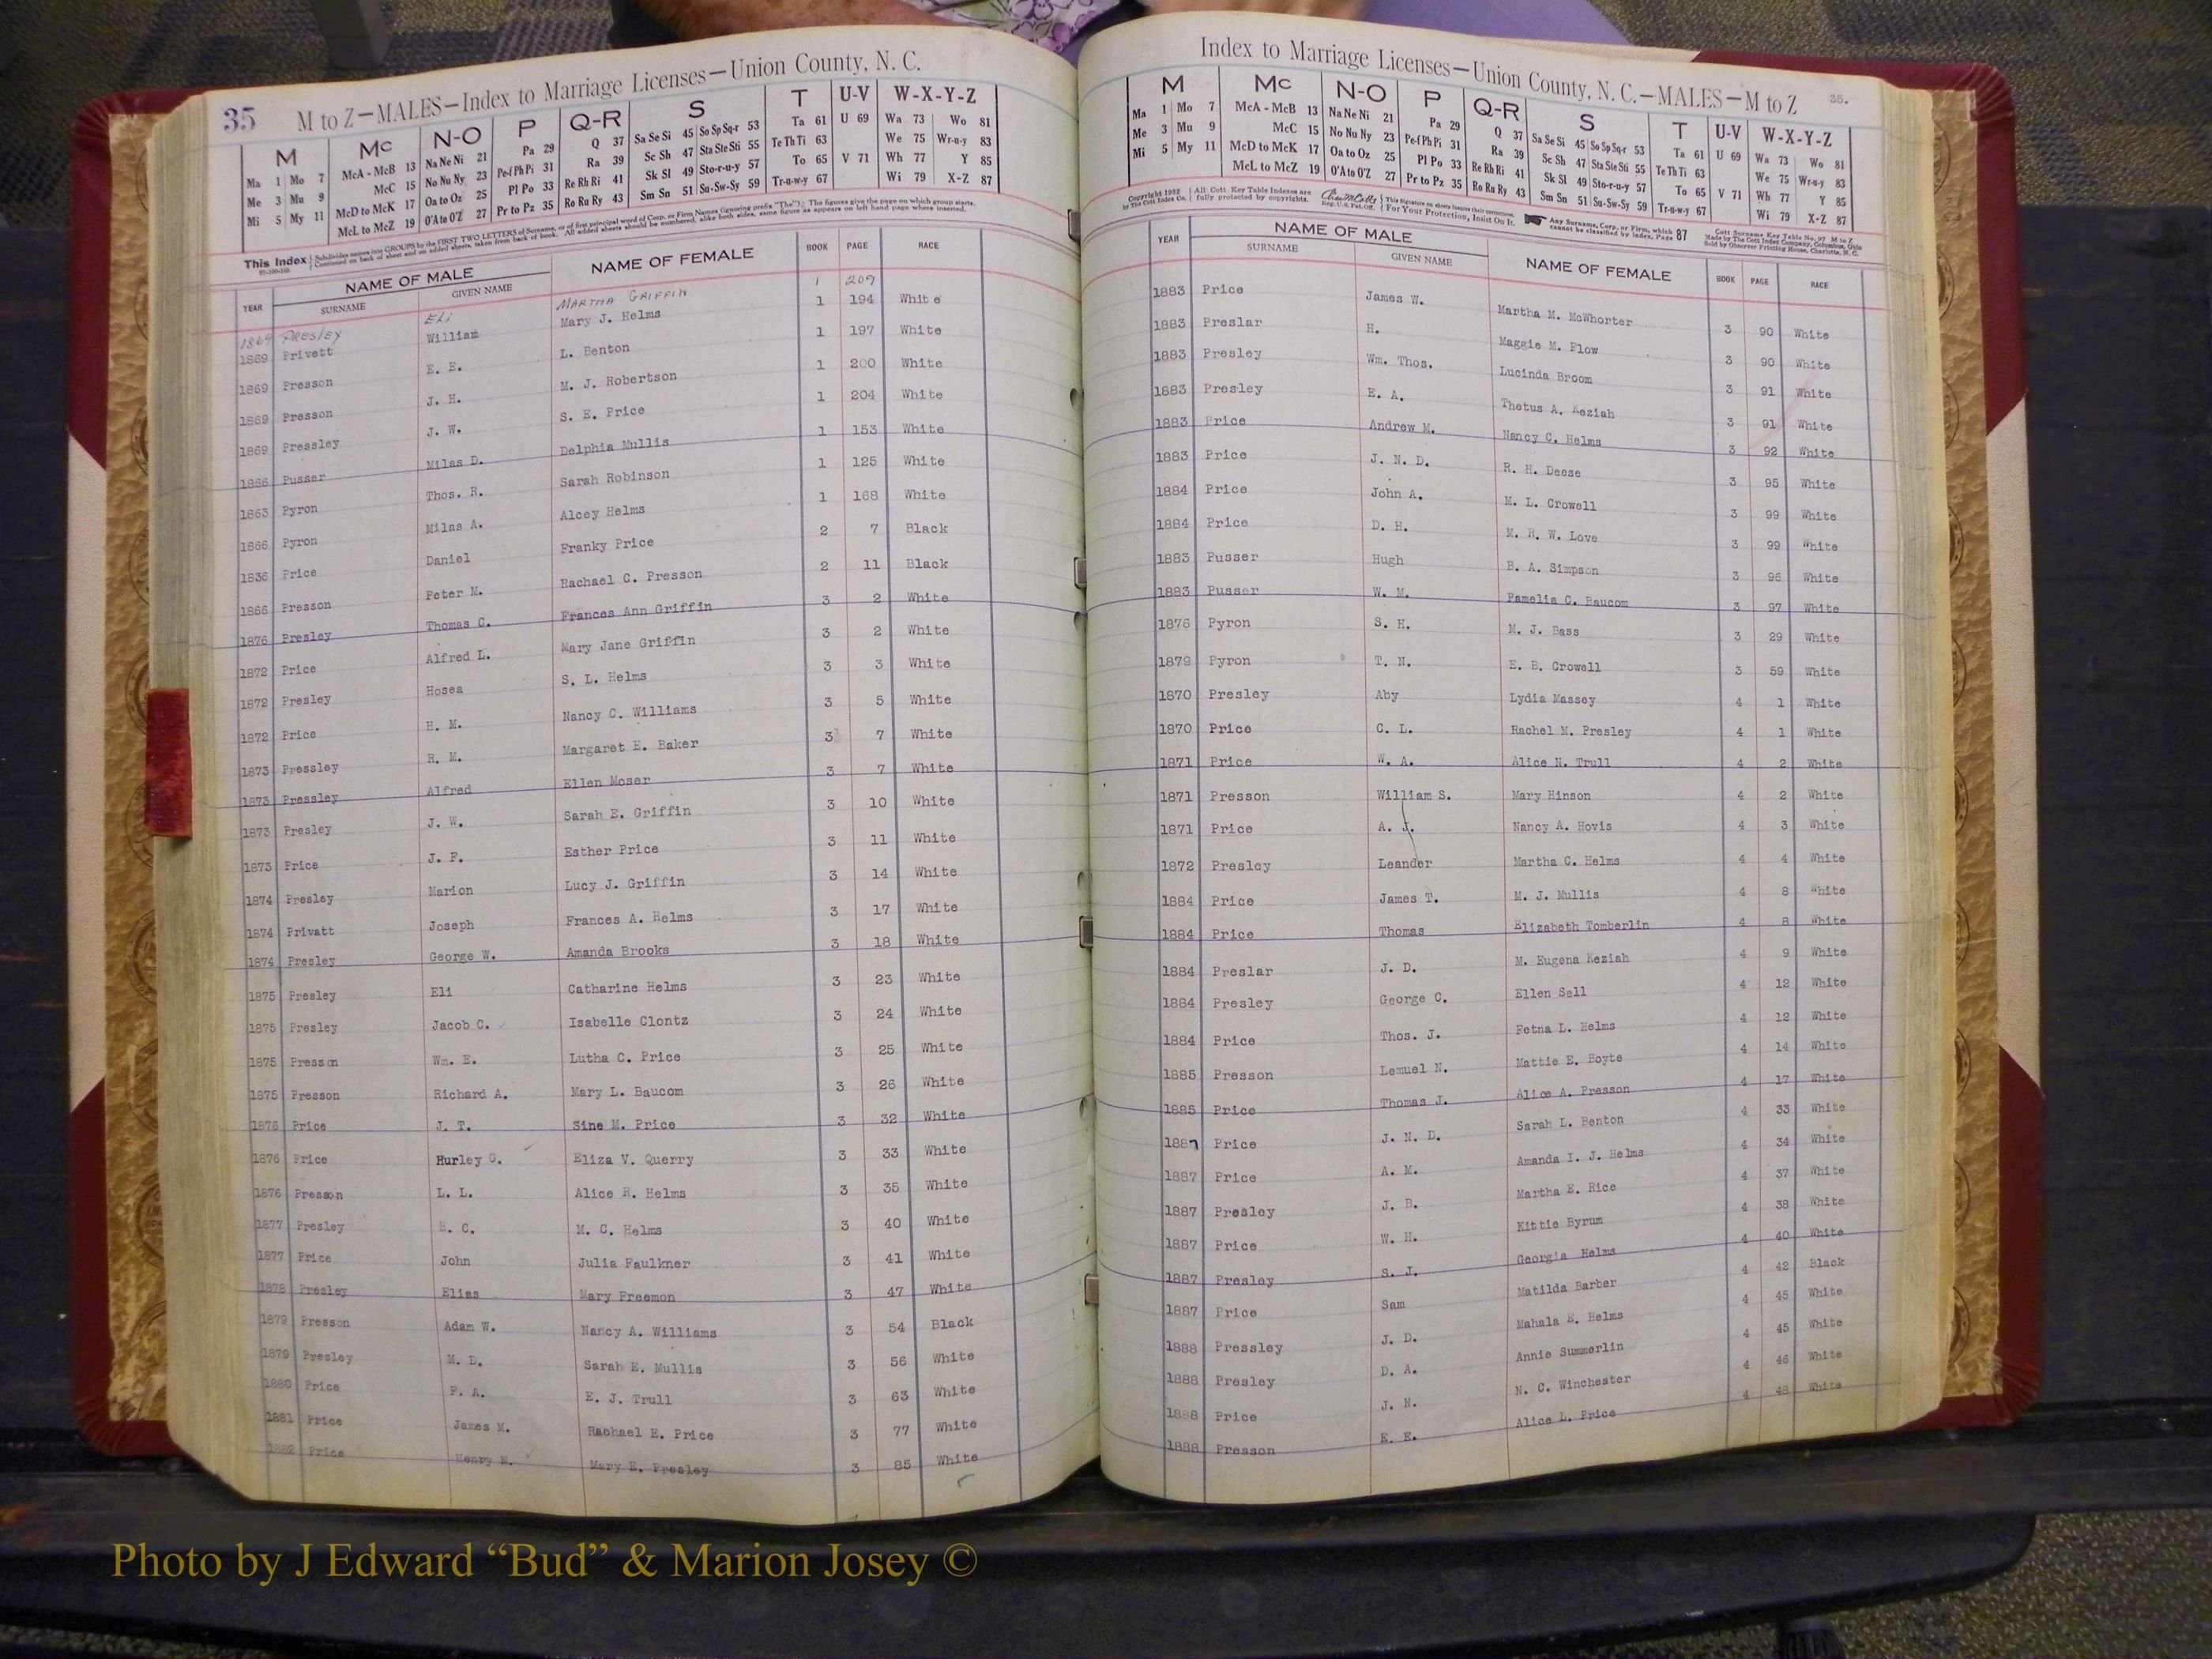 35 M to Z—MALES—Index to Marriage Licenses—Union County, N. C.
M Mc N-O P Q-R S T U-V W-X-Y-Z
Ma 1 Mo 7 McA - McB 13 Na Ne Ni 21 Pa 29 Q 37 Sa Se Si 45 So Sp Sq-r 53 Ta 61 U 69 Wa 73 Wo 81
Me 3 Mu 9 McC 15 No Nu Ny 23 Pe-f Ph Pi 31 Ra 39 Sc Sh 47 Sta Ste Sti 55 Te Th Ti 63 We 75 Wr-u-y 83
Mi 5 My 11 McD to McK 17 Oa to Oz 25 Pl Po 33 Re Rh Ri 41 Sk Sl 49 Sto-r-u-y 57 To 65 V 71 Wh 77 Y 85
McL to McZ 19 O'A to O'Z 27 Pr to Pz 35 Ro Ru Ry 43 Sm Sn 51 Su-Sw-Sy 59 Tr-u-w-y 67 Wi 79 X-Z 87
This Index { Subdivides names into GROUPS by the FIRST TWO LETTERS of Surname, or of first principal word of Corp. or Firm Names (ignoring prefix "The"); The figures give the page on which group starts.
Continued on back of sheet and on added sheets, taken from back of book. All added sheets should be numbered, alike both sides, same figure as appears on left hand page where inserted.
YEAR NAME OF MALE SURNAME GIVEN NAME NAME OF FEMALE BOOK PAGE RACE
1869 PRESLEY ELI MARTHA GRIFFIN 1 209
1869 Privett William Mary J. Helms 1 194 White
1869 Presson E. E. L. Benton 1 197 White
1869 Presson J. H. M. J. Robertson 1 200 White
1869 Pressley J. W. S. E. Price 1 204 White
1866 Pusser Milas D. Delphia Mullis 1 153 White
1863 Pyron Thos. R. Sarah Robinson 1 125 White
1866 Pyron Milas A. Alcey Helms 1 168 White
1836 Price Daniel Franky Price 2 7 Black
1866 Presson Peter M. Rachael C. Presson 2 11 Black
1876 Presley Thomas C. Frances Ann Griffin 3 2 White
1872 Price Alfred L. Mary Jane Griffin 3 2 White
1872 Presley Hosea S. L. Helms 3 3 White
1872 Price H. M. Nancy C. Williams 3 5 White
1873 Pressley R. M. Margaret E. Baker 3 7 White
1873 Pressley Alfred Ellen Moser 3 7 White
1873 Presley J. W. Sarah E. Griffin 3 10 White
1873 Price J. F. Esther Price 3 11 White
1874 Presley Marion Lucy J. Griffin 3 14 White
1874 Privatt Joseph Frances A. Helms 3 17 White
1874 Presley George W. Amanda Brooks 3 18 White
1875 Presley Eli Catharine Helms 3 23 White
1875 Presley Jacob C. Isabelle Clontz 3 24 White
1875 Presson Wm. E. Lutha C. Price 3 25 White
1875 Presson Richard A. Mary L. Baucom 3 26 White
1876 Price J. T. Sine M. Price 3 32 White
1876 Price Hurley G. Eliza V. Querry 3 33 White
1876 Presson L. L. Alice R. Helms 3 35 White
1877 Presley B. C. M. C. Helms 3 40 White
1877 Price John Julia Faulkner 3 41 White
1878 Presley Elias Mary Freemon 3 47 White
1879 Presson Adam W. Nancy A. Williams 3 54 Black
1879 Presley M. D. Sarah E. Mullis 3 56 White
1880 Price F. A. E. J. Trull 3 63 White
1881 Price James M. Rachael E. Price 3 77 White
1882 Price Henry M. Mary E. Presley 3 85 White
Index to Marriage Licenses—Union County, N. C.—MALES—M to Z 35.
M Mc N-O P Q-R S T U-V W-X-Y-Z
Ma 1 Mo 7 McA - McB 13 Na Ne Ni 21 Pa 29 Q 37 Sa Se Si 45 So Sp Sq-r 53 Ta 61 U 69 Wa 73 Wo 81
Me 3 Mu 9 McC 15 No Nu Ny 23 Pe-f Ph Pi 31 Ra 39 Sc Sh 47 Sta Ste Sti 55 Te Th Ti 63 We 75 Wr-u-y 83
Mi 5 My 11 McD to McK 17 Oa to Oz 25 Pl Po 33 Re Rh Ri 41 Sk Sl 49 Sto-r-u-y 57 To 65 V 71 Wh 77 Y 85
McL to McZ 19 O'A to O'Z 27 Pr to Pz 35 Ro Ru Ry 43 Sm Sn 51 Su-Sw-Sy 59 Tr-u-w-y 67 Wi 79 X-Z 87
All Cott Key Table Indexes are fully protected by copyrights. For Your Protection, Insist On It. Any Surname, Corp. or Firm, which cannot be classified by index, Page 87
YEAR NAME OF MALE SURNAME GIVEN NAME NAME OF FEMALE BOOK PAGE RACE
1883 Price James W. Martha M. McWhorter 3 90 White
1883 Preslar H. Maggie M. Flow 3 90 White
1883 Presley Wm. Thos. Lucinda Broom 3 91 White
1883 Presley E. A. Thetus A. Keziah 3 91 White
1883 Price Andrew M. Nancy C. Helms 3 92 White
1883 Price J. N. D. R. H. Deese 3 95 White
1884 Price John A. M. L. Crowell 3 99 White
1884 Price D. H. M. R. W. Love 3 99 White
1883 Pusser Hugh B. A. Simpson 3 96 White
1883 Pusser W. M. Pamelia C. Baucom 3 97 White
1876 Pyron S. H. M. J. Bass 3 29 White
1879 Pyron T. N. E. B. Crowell 3 59 White
1870 Presley Aby Lydia Massey 4 1 White
1870 Price C. L. Rachel M. Presley 4 1 White
1871 Price W. A. Alice N. Trull 4 2 White
1871 Presson William S. Mary Hinson 4 2 White
1871 Price A. J. Nancy A. Hovis 4 3 White
1872 Presley Leander Martha C. Helms 4 4 White
1884 Price James T. M. J. Mullis 4 8 White
1884 Price Thomas Elizabeth Tomberlin 4 8 White
1884 Preslar J. D. M. Eugena Keziah 4 9 White
1884 Presley George C. Ellen Sell 4 12 White
1884 Price Thos. J. Fetna L. Helms 4 12 White
1885 Presson Lemuel N. Mattie E. Hoyte 4 14 White
1885 Price Thomas J. Alice A. Presson 4 17 White
1887 Price J. N. D. Sarah L. Benton 4 33 White
1887 Price A. M. Amanda I. J. Helms 4 34 White
1887 Presley J. B. Martha E. Rice 4 37 White
1887 Price W. H. Kittie Byrum 4 38 White
1887 Presley S. J. Georgia Helms 4 40 White
1887 Price Sam Matilda Barber 4 42 Black
1888 Pressley J. D. Mahala E. Helms 4 45 White
1888 Presley D. A. Annie Summerlin 4 45 White
1888 Price J. N. N. C. Winchester 4 46 White
1888 Presson E. E. Alice L. Price 4 48 White
Photo by J Edward “Bud” & Marion Josey ©